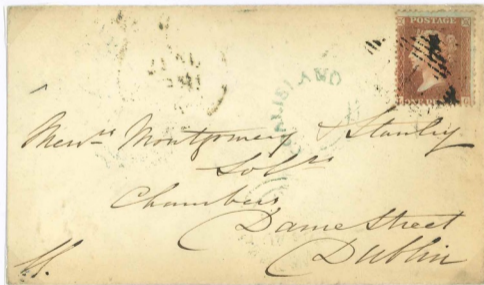 POSTAGE
COALISLAND
Messrs Montgomery & Stanley
Solrs
Chambers
Dame Street
Dublin